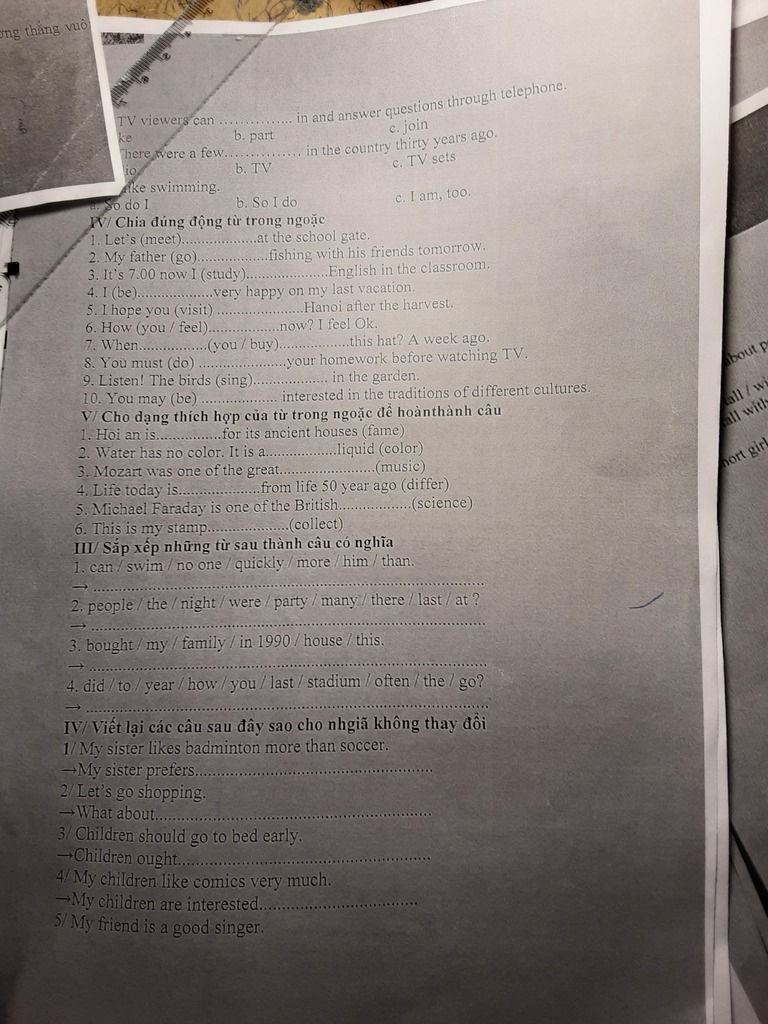 thẳng vuô
TV viewers can ............... in and answer questions through telephone.
b. part c. join
here were a few............... in the country thirty years ago.
b. TV c. TV sets
like swimming.
a. So do I b. So I do c. I am, too.
IV/ Chia đúng động từ trong ngoặc
1. Let's (meet)..................at the school gate.
2. My father (go).................fishing with his friends tomorrow.
3. It's 7.00 now I (study)....................English in the classroom.
4. I (be)..................very happy on my last vacation.
5. I hope you (visit) .....................Hanoi after the harvest.
6. How (you / feel).................now? I feel Ok.
7. When.................(you / buy).................this hat? A week ago.
8. You must (do) .....................your homework before watching TV.
9. Listen! The birds (sing).................. in the garden.
10. You may (be) .................. interested in the traditions of different cultures.
V/ Cho dạng thích hợp của từ trong ngoặc để hoànthành câu
1. Hoi an is................for its ancient houses (fame)
2. Water has no color. It is a.................liquid (color)
3. Mozart was one of the great.......................(music)
4. Life today is....................from life 50 year ago (differ)
5. Michael Faraday is one of the British..................(science)
6. This is my stamp....................(collect)
III/ Sắp xếp những từ sau thành câu có nghĩa
1. can / swim / no one / quickly / more / him / than.
→ ................................................................................
2. people / the / night / were / party / many / there / last / at ?
→ ................................................................................
3. bought / my / family / in 1990 / house / this.
→ ................................................................................
4. did / to / year / how / you / last / stadium / often / the / go?
→ ................................................................................
IV/ Viết lại các câu sau đây sao cho nhgiã không thay đổi
1/ My sister likes badminton more than soccer.
→My sister prefers.................................................
2/ Let's go shopping.
→What about..........................................................
3/ Children should go to bed early.
→Children ought.....................................................
4/ My children like comics very much.
→My children are interested................................
5/ My friend is a good singer.
about
all / wi
all with
hort girl